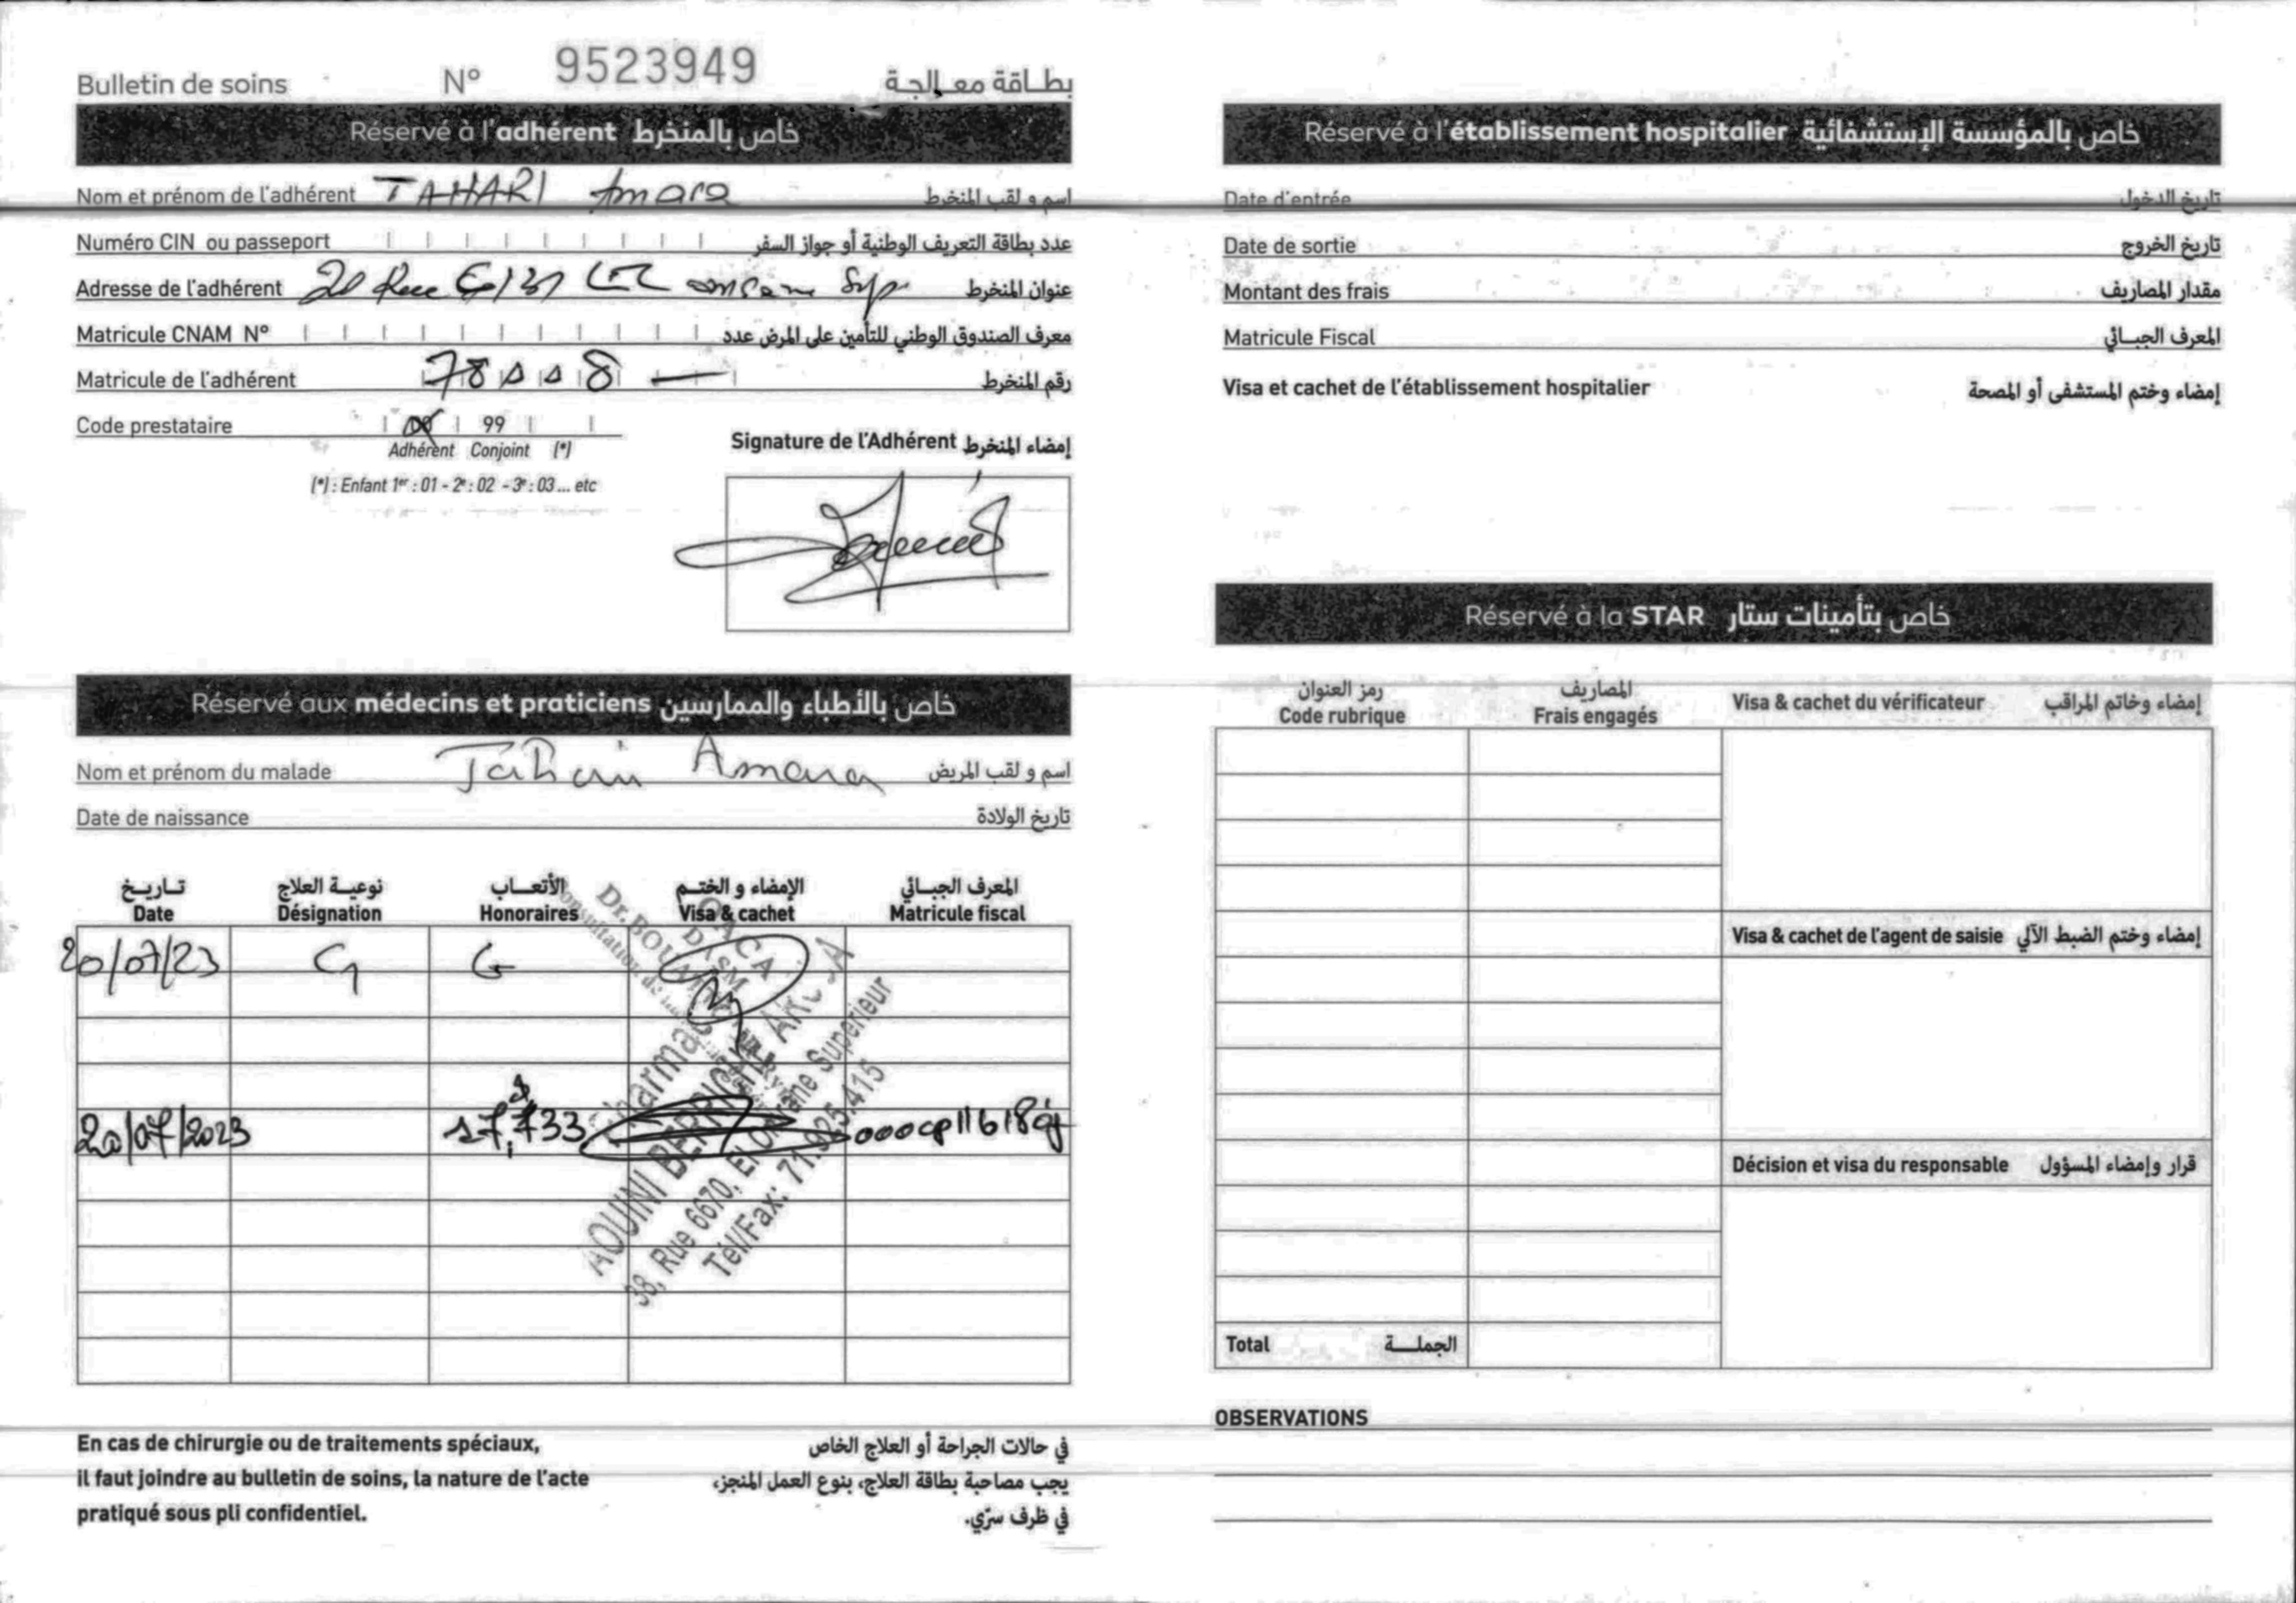 Bulletin de soins N° 9523949 بطاقة معالجة
Réservé à l'adhérent خاص بالمنخرط
Nom et prénom de l'adhérent TAHARI Amara اسم و لقب المنخرط
Numéro CIN ou passeport عدد بطاقة التعريف الوطنية أو جواز السفر
Adresse de l'adhérent 20 Rue عنوان المنخرط
Matricule CNAM N° معرف الصندوق الوطني للتأمين على المرض عدد
Matricule de l'adhérent رقم المنخرط
Code prestataire 00 99
Adhérent Conjoint (*)
(*) : Enfant 1er : 01 - 2e : 02 - 3e : 03 ... etc
Signature de l'Adhérent إمضاء المنخرط
Réservé aux médecins et praticiens خاص بالأطباء والممارسين
Nom et prénom du malade Tahari Amara اسم و لقب المريض
Date de naissance تاريخ الولادة
تاريخ نوعية العلاج الأتعاب الإمضاء و الختم المعرف الجبائي
Date Désignation Honoraires Visa & cachet Matricule fiscal
20/07/23 G
20/07/2023 17,733
Pharma
AOUINI BERRICHE
38, Rue 6670, El Omrane Superieur
Tél/Fax: 71.925.415
En cas de chirurgie ou de traitements spéciaux,
il faut joindre au bulletin de soins, la nature de l'acte
pratiqué sous pli confidentiel.
في حالات الجراحة أو العلاج الخاص
يجب مصاحبة بطاقة العلاج، بنوع العمل المنجز،
في ظرف سرّي.
Réservé à l'établissement hospitalier خاص بالمؤسسة الإستشفائية
Date d'entrée تاريخ الدخول
Date de sortie تاريخ الخروج
Montant des frais مقدار المصاريف
Matricule Fiscal المعرف الجبائي
Visa et cachet de l'établissement hospitalier إمضاء وختم المستشفى أو المصحة
Réservé à la STAR خاص بتأمينات ستار
رمز العنوان المصاريف
Code rubrique Frais engagés Visa & cachet du vérificateur إمضاء وخاتم المراقب
Visa & cachet de l'agent de saisie إمضاء وختم الضبط الآلي
Décision et visa du responsable قرار وإمضاء المسؤول
Total الجملة
OBSERVATIONS